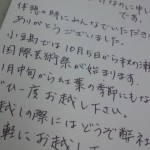 休憩の時にみんなでいただき
ありがとうございました。
小豆島では10月5日から秋の瀬
国際芸術祭が始まります。
1月中旬から紅葉の季節にもな
ひ一度お越し下さい。
越しの際にはどうぞ弊社
軽にお越し